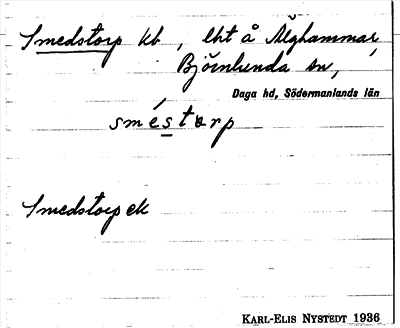 Smedstorp kb, lht å Älghammar,
Björnlunda sn,
Daga hd, Södermanlands län
sméstorp
Smedstorp ek
KARL-ELIS NYSTEDT 1936